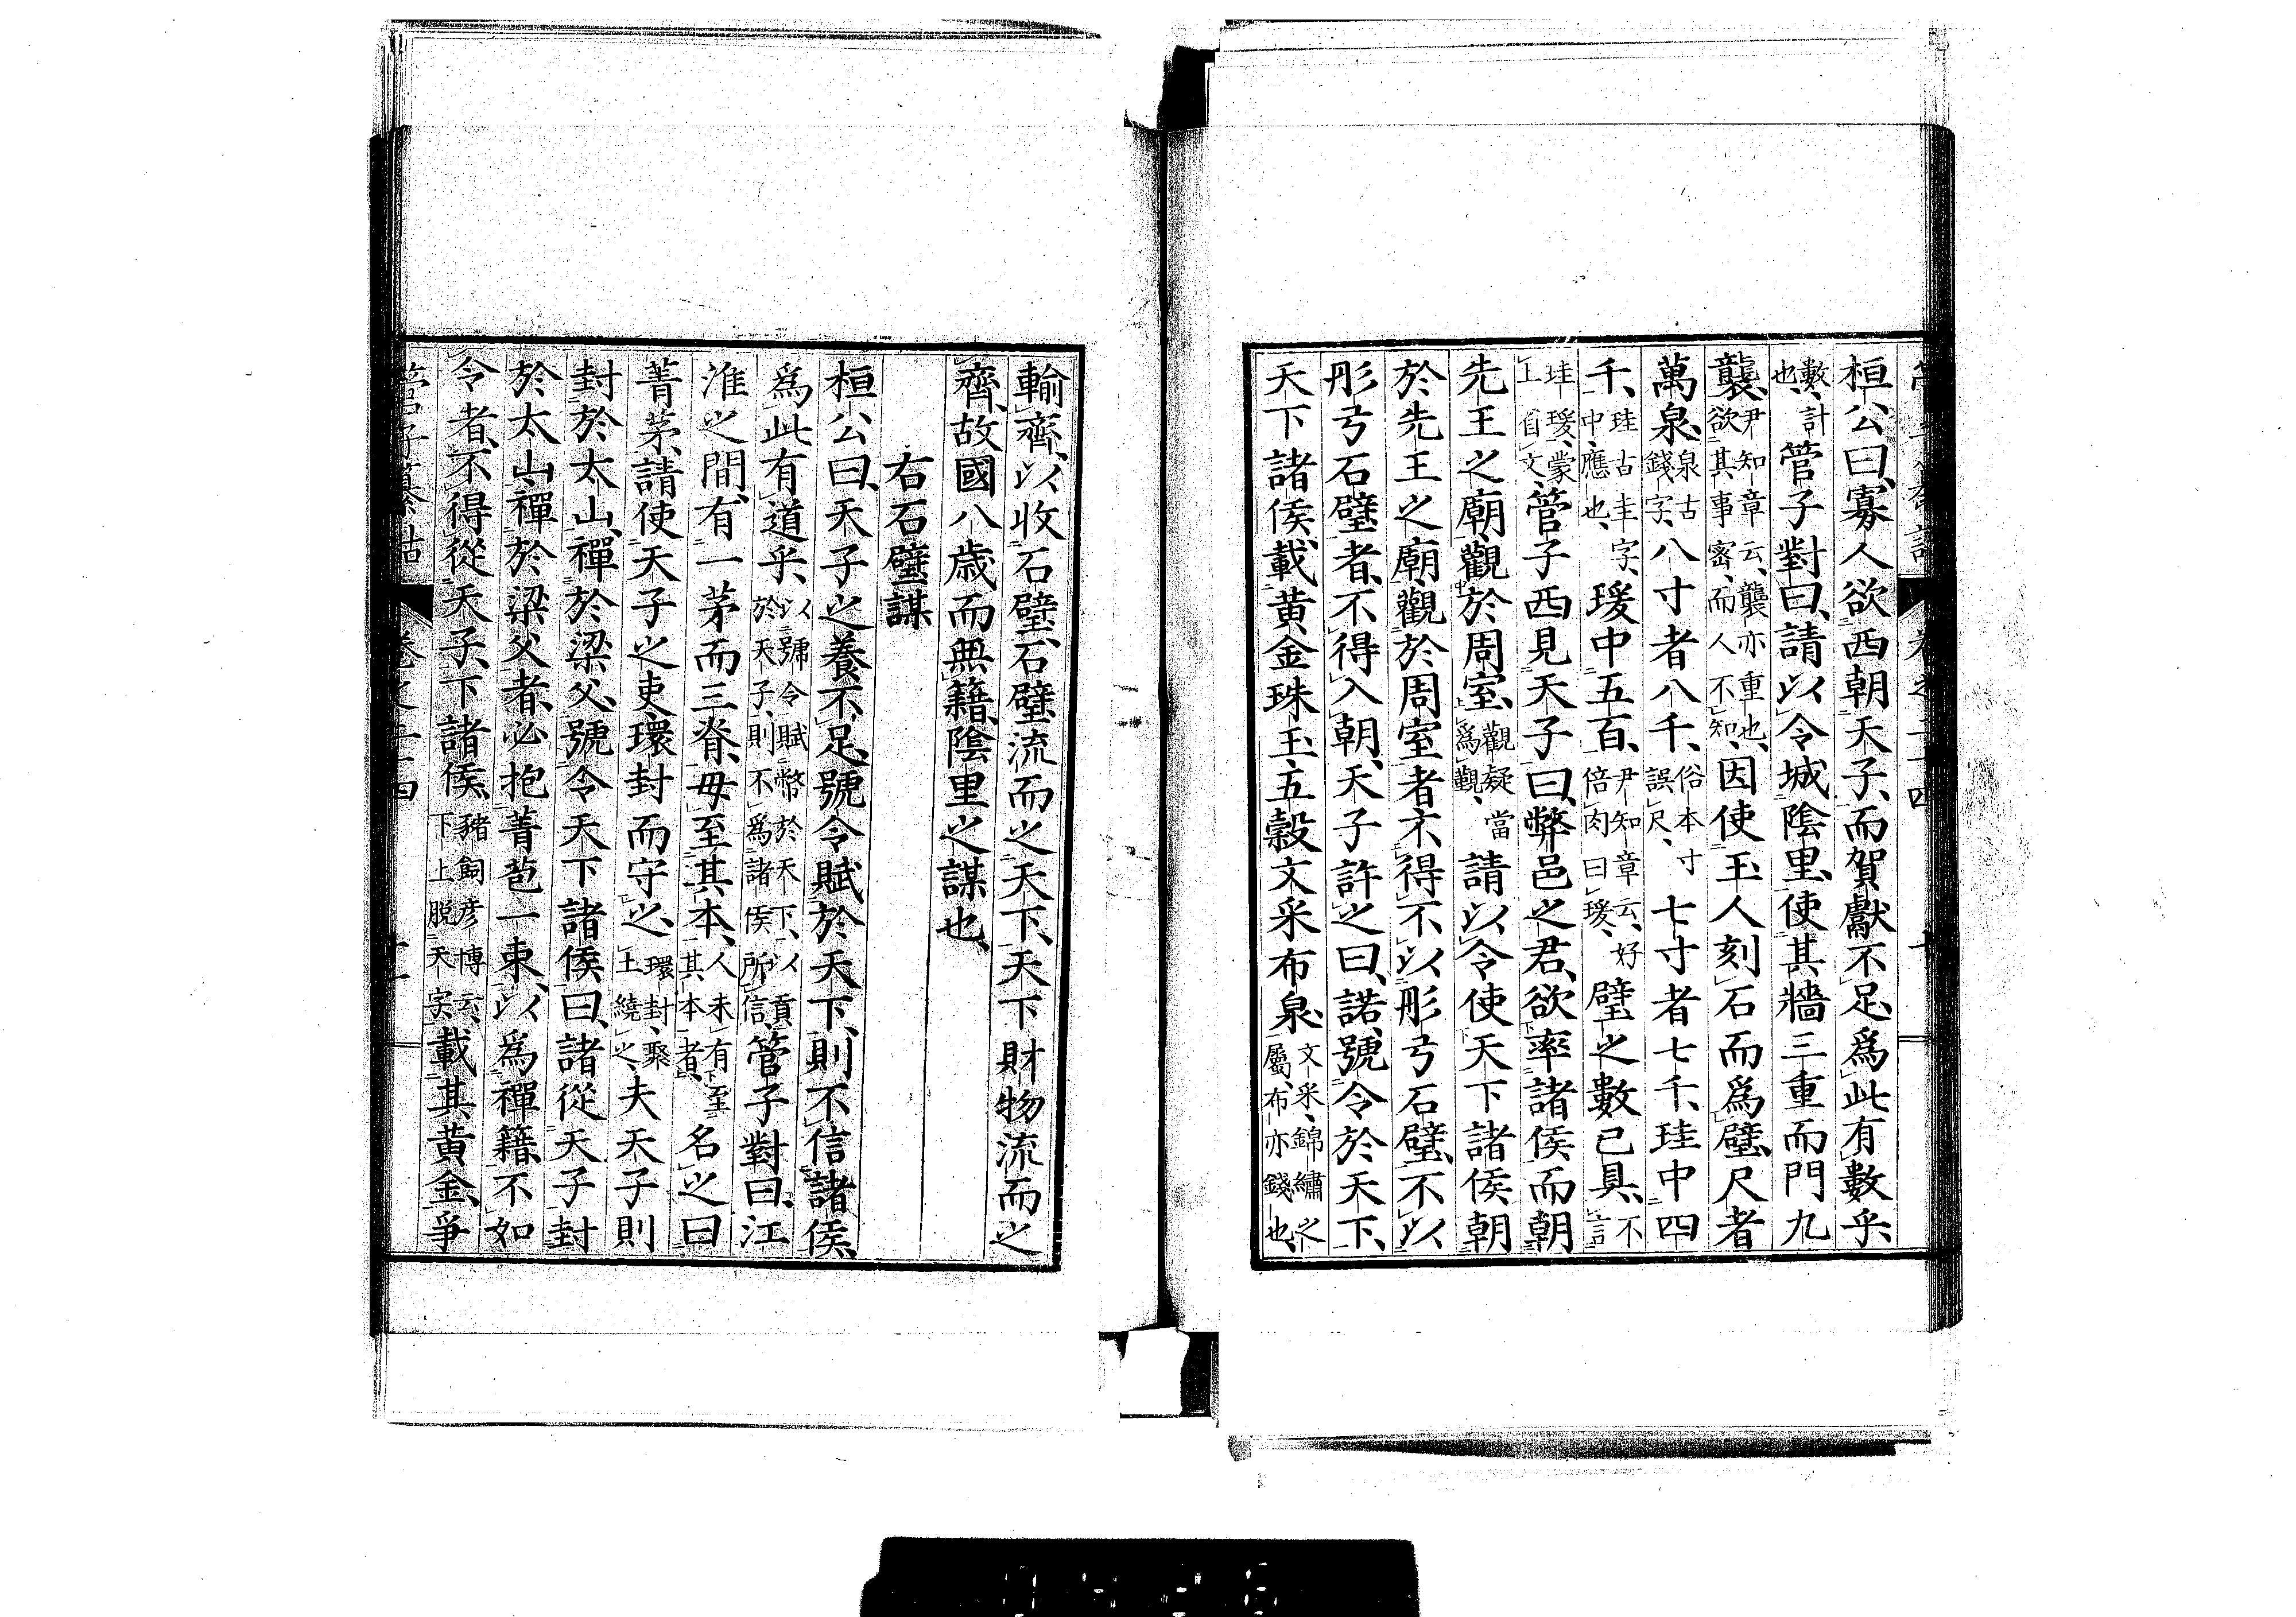 管子纂詁　卷之二十四　十
桓公曰、寡人欲西朝天子、而賀獻不足、爲此有數乎、
數、計也、管子對曰、請以令城陰里、使其牆三重而門九
襲、尹知章云、襲亦重也、欲其事密、而人不知、因使玉人刻石而爲璧、尺者
萬泉、泉古錢字、八寸者八千、俗本寸誤尺、七寸者七千、珪中四
千、珪古圭字、中、應也、瑗中五百、尹知章云、好倍肉曰瑗、璧之數已具、不言
珪瑗、蒙上省文、管子西見天子曰、弊邑之君、欲率諸侯而朝
先王之廟、觀於周室、觀疑當爲覲、請以令使天下諸侯朝
於先王之廟、觀於周室者、不得不以彤弓石璧、不以
彤弓石璧者、不得入朝、天子許之曰、諾、號令於天下、
天下諸侯、載黃金珠玉五穀文采布泉、文采、錦繡之屬、布亦錢也、
輸齊、以收石璧、石璧流而之天下、天下財物流而之
齊、故國八歲而無籍、陰里之謀也、
右石璧謀
桓公曰、天子之養不足、號令賦於天下、則不信諸侯、
爲此有道乎、以號令賦幣於天下、以貢於天子、則不爲諸侯所信、管子對曰、江
淮之間、有一茅而三脊、毋至其本、人未有至其本者、名之曰
菁茅、請使天子之吏、環封而守之、環封、聚土繞之、夫天子則
封於太山、禪於梁父、號令天下諸侯曰、諸從天子封
於太山、禪於梁父者、必抱菁茅一束、以爲禪籍、不如
令者、不得從天子、下諸侯、豬飼彥博云、下上脫天字、載其黃金、爭
管子纂詁　卷之二十四　十一